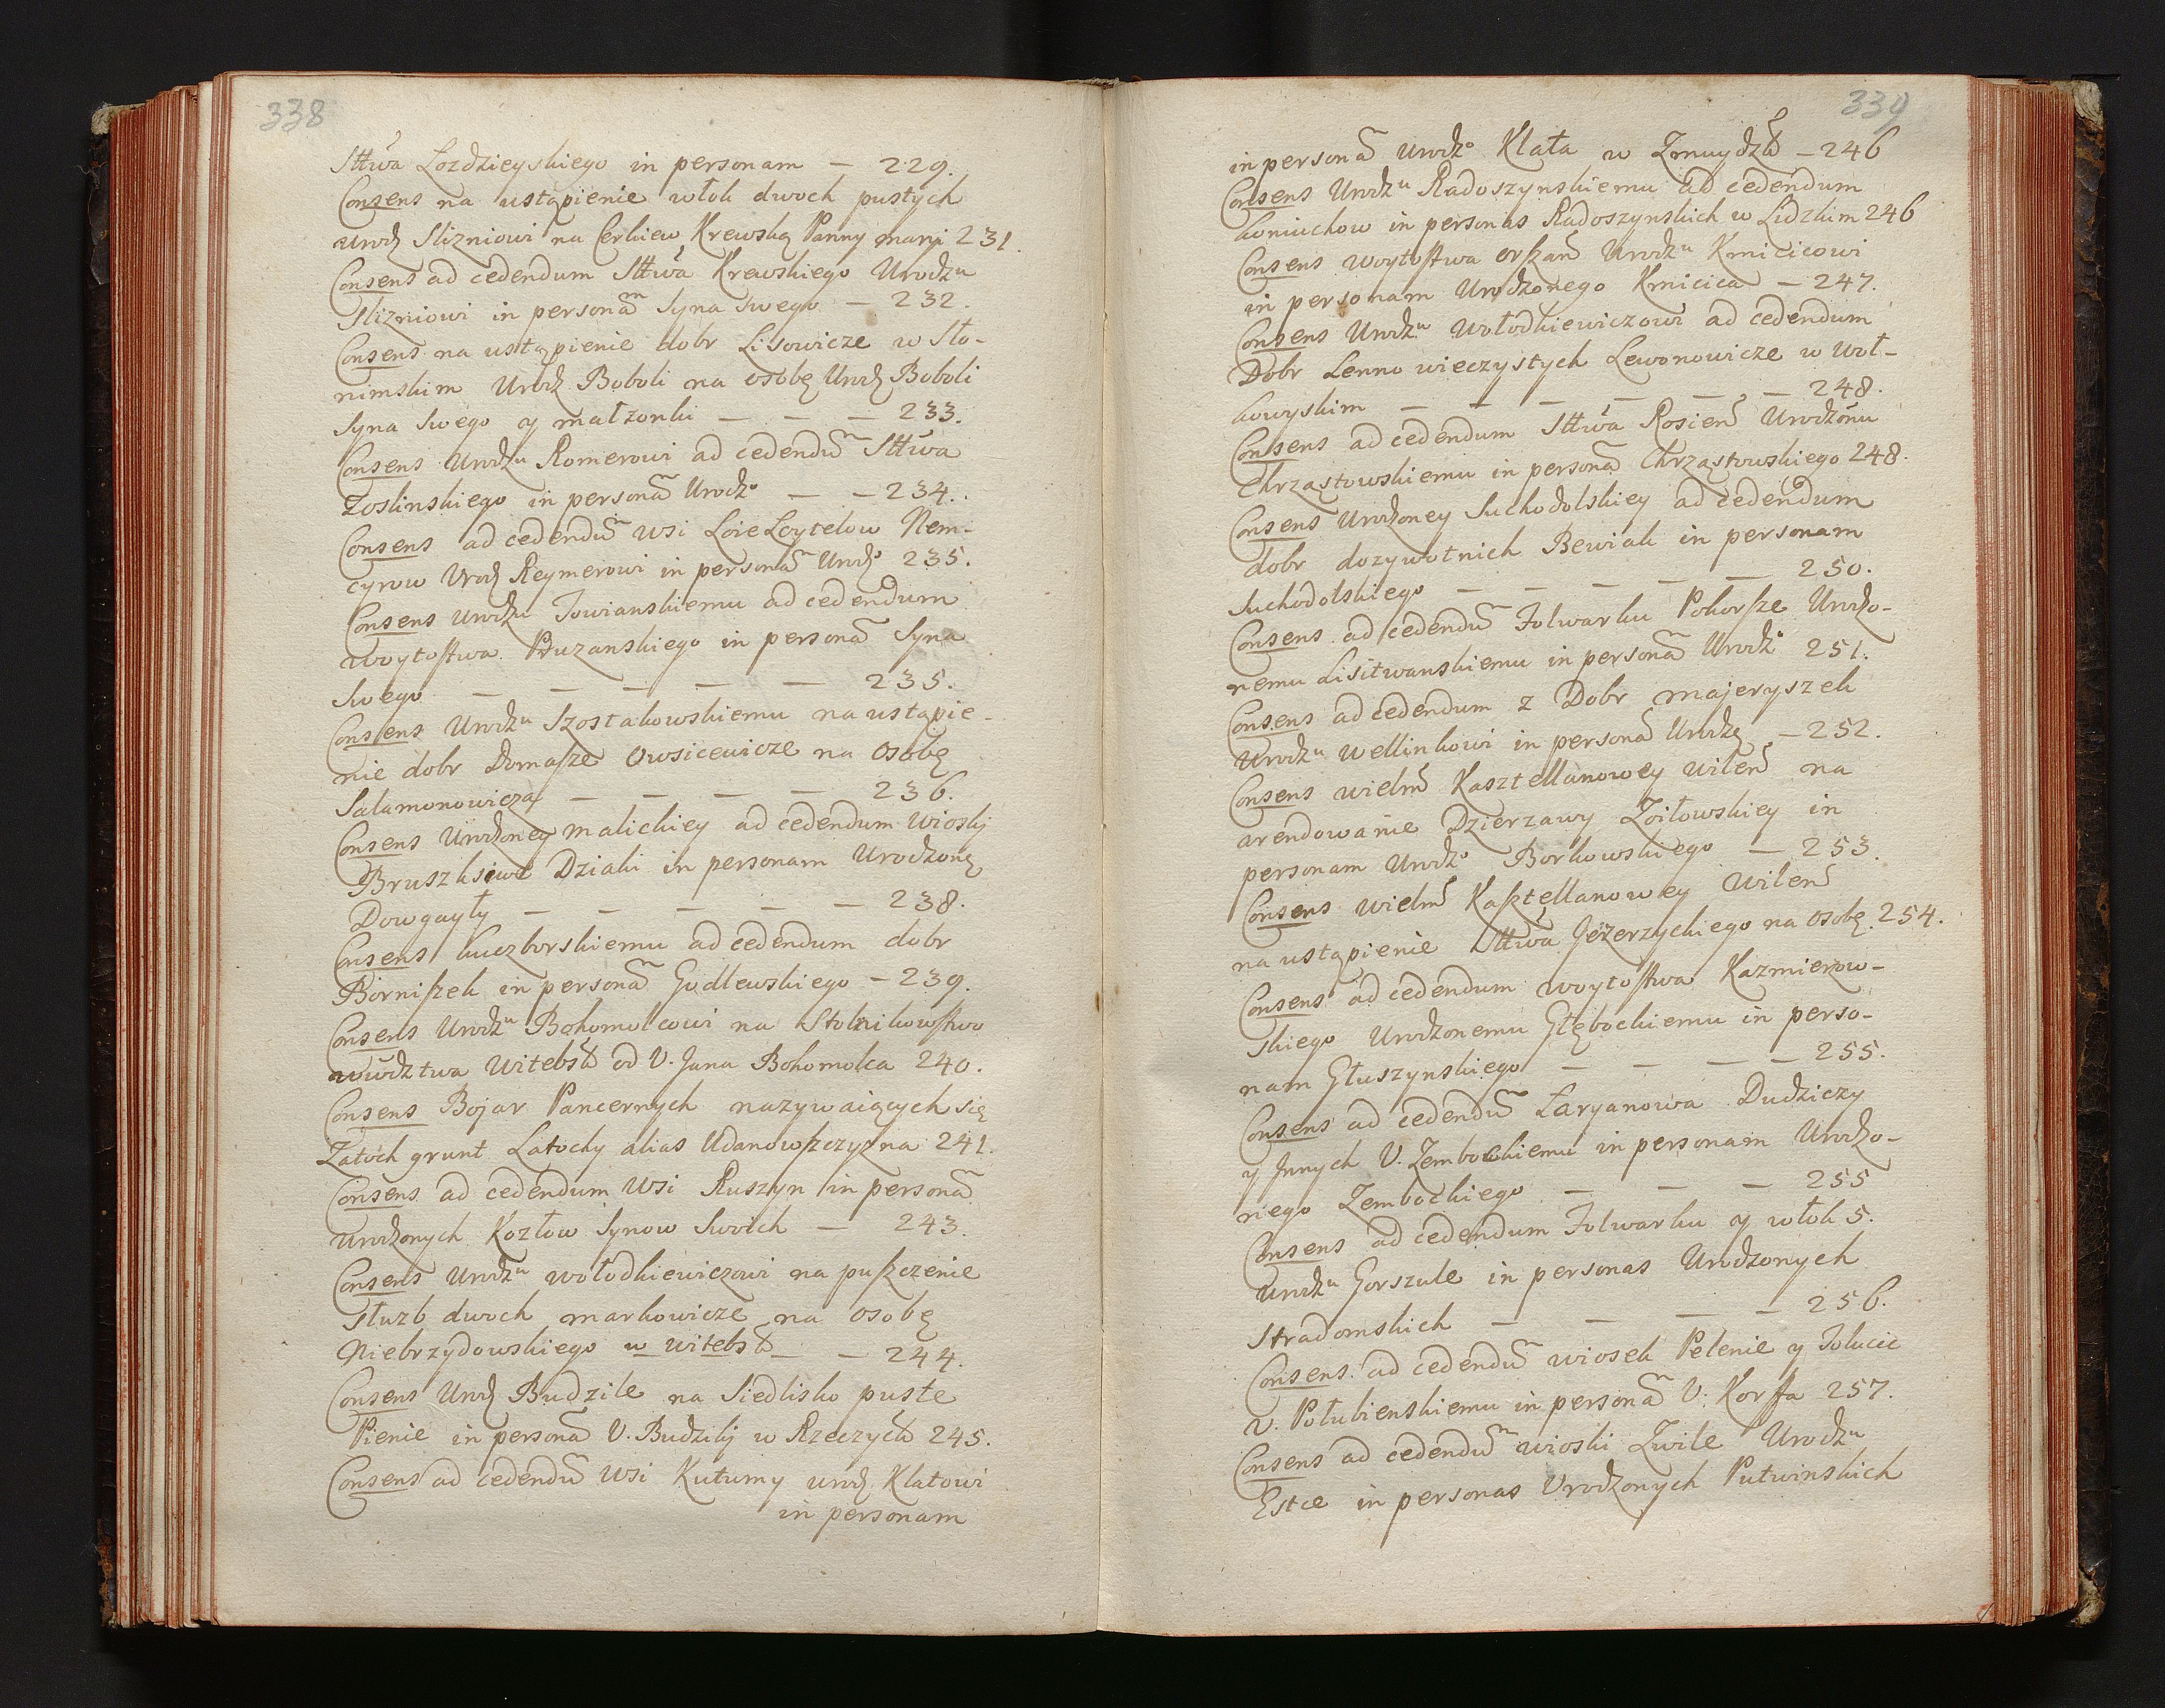 338
Sttwa Łozdzieyskiego in personam — 229.
Consens na ustąpienie włok dwoch pustych
urodz Slizniowi na Cerkiew Krewską Panny Maryi 231.
Consens ad cedendum Sttwa Krewskiego Urodzu
Slizniowi in personam Syna Swego — 232.
Consens na ustąpienie dobr Lisowicze w Sło-
nimskim Urodz Boboli na osobę Urodz Boboli
Syna Swego y małzonki — — — 233.
Consens Urodzu Romerowi ad cedendum Sttwa
Zoslinskiego in personam Urodzo — — 234.
Consens ad cedendum wsi Nem-
cyrow Urodz Reymerowi in personam Urodzo 235.
Consens Urodzu Towianskiemu ad cedendum
woytostwa Puzanskiego in personam Syna
Swego — — — — — 235.
Consens Urodzu Szostakowskiemu na ustąpie-
nie dobr Domasze Owsicewicze na Osobę
Salamonowicza — — — — 236.
Consens Urodzoney Malickiey ad cedendum wioski
Dziaki in personam Urodzonę
Dowgayły — — — — — 238.
Consens Kuczborskiemu ad cedendum dobr
Borniszek in personam Godlewskiego — 239.
Consens Urodzu Bohomolcowi na Stolnikowstwo
wwdztwa Witebs od V. Jana Bohomolca 240.
Consens Bojar Pancernych nazywaiących się
Zatoch grunt Latochy alias Udanowszczyzna 241.
Consens ad cedendum Wsi Ruszyn in personam
urodzonych Kozłow Synow Swoich — 243.
Consens Urodzu Wołodkiewiczowi na puszczenie
Służb dwoch Markowicze na osobę
Niebrzydowskiego w witebs — — 244.
Consens Urodz Budzile na Siedlisko puste
Pienie in personam V. Budziły w Rzeczyck 245.
Consens ad cedendum Wsi Kutumy urodz Klatowi
in personam
339
in personam urodzo Klata w Zmuydzk — 246
Consens Urodzu Radoszynskiemu ad cedendum
koniuchow in personas Radoszynskich w Lidzkim 246
Consens woytostwa orszan Urodzu Kmicicowi
in personam Urodzonego Kmicica — 247.
Consens Urodzu Wołodkiewiczowi ad cedendum
Dobr Lenno wieczystych Lewonowicze w Woł-
kowyskim — — — — — — 248.
Consens ad cedendum Sttwa Rosien Urodzonu
Chrząstowskiemu in personam Chrząstowskiego 248.
Consens Urodzoney Suchodolskiey ad cedendum
dobr dozywotnich Bewiak in personam
Suchodolskiego — — — — — 250.
Consens ad cedendum Folwarku Pohorsze Urodzo-
nemu Lisitwanskiemu in personam Urodzo 251.
Consens ad cedendum z Dobr Majeryszek
Urodzu Wellinkowi in personam Urodzę — 252.
Consens wielm Kasztellanowey wilen na
arendowanie Dzierzawy Zoitowskiey in
personam Urodzo Borkowskiego — 253.
Consens wielm Kasztellanowey wilen
na ustąpienie Sttwa Jezerzyckiego na osobę. 254.
Consens ad cedendum woytostwa Kazmierow-
skiego Urodzonemu Głębockiemu in perso-
nam Głuszynskiego — — — — 255.
Consens ad cedendum Laryanowa Dudziczy
y Jnnych V. Zembockiemu in personam Urodzo-
nego Zembockiego — — — 255
Consens ad cedendum Folwarku y włok 5.
Urodzu Gorszule in personas Urodzonych
Stradomskich — — — — 256.
Consens ad cedendum wiosek Pelenie y Tolucie
V. Połubienskiemu in personam V. Korffa 257.
Consens ad cedendum wioski Zwile Urodzu
Estce in personas Urodzonych Putwinskich